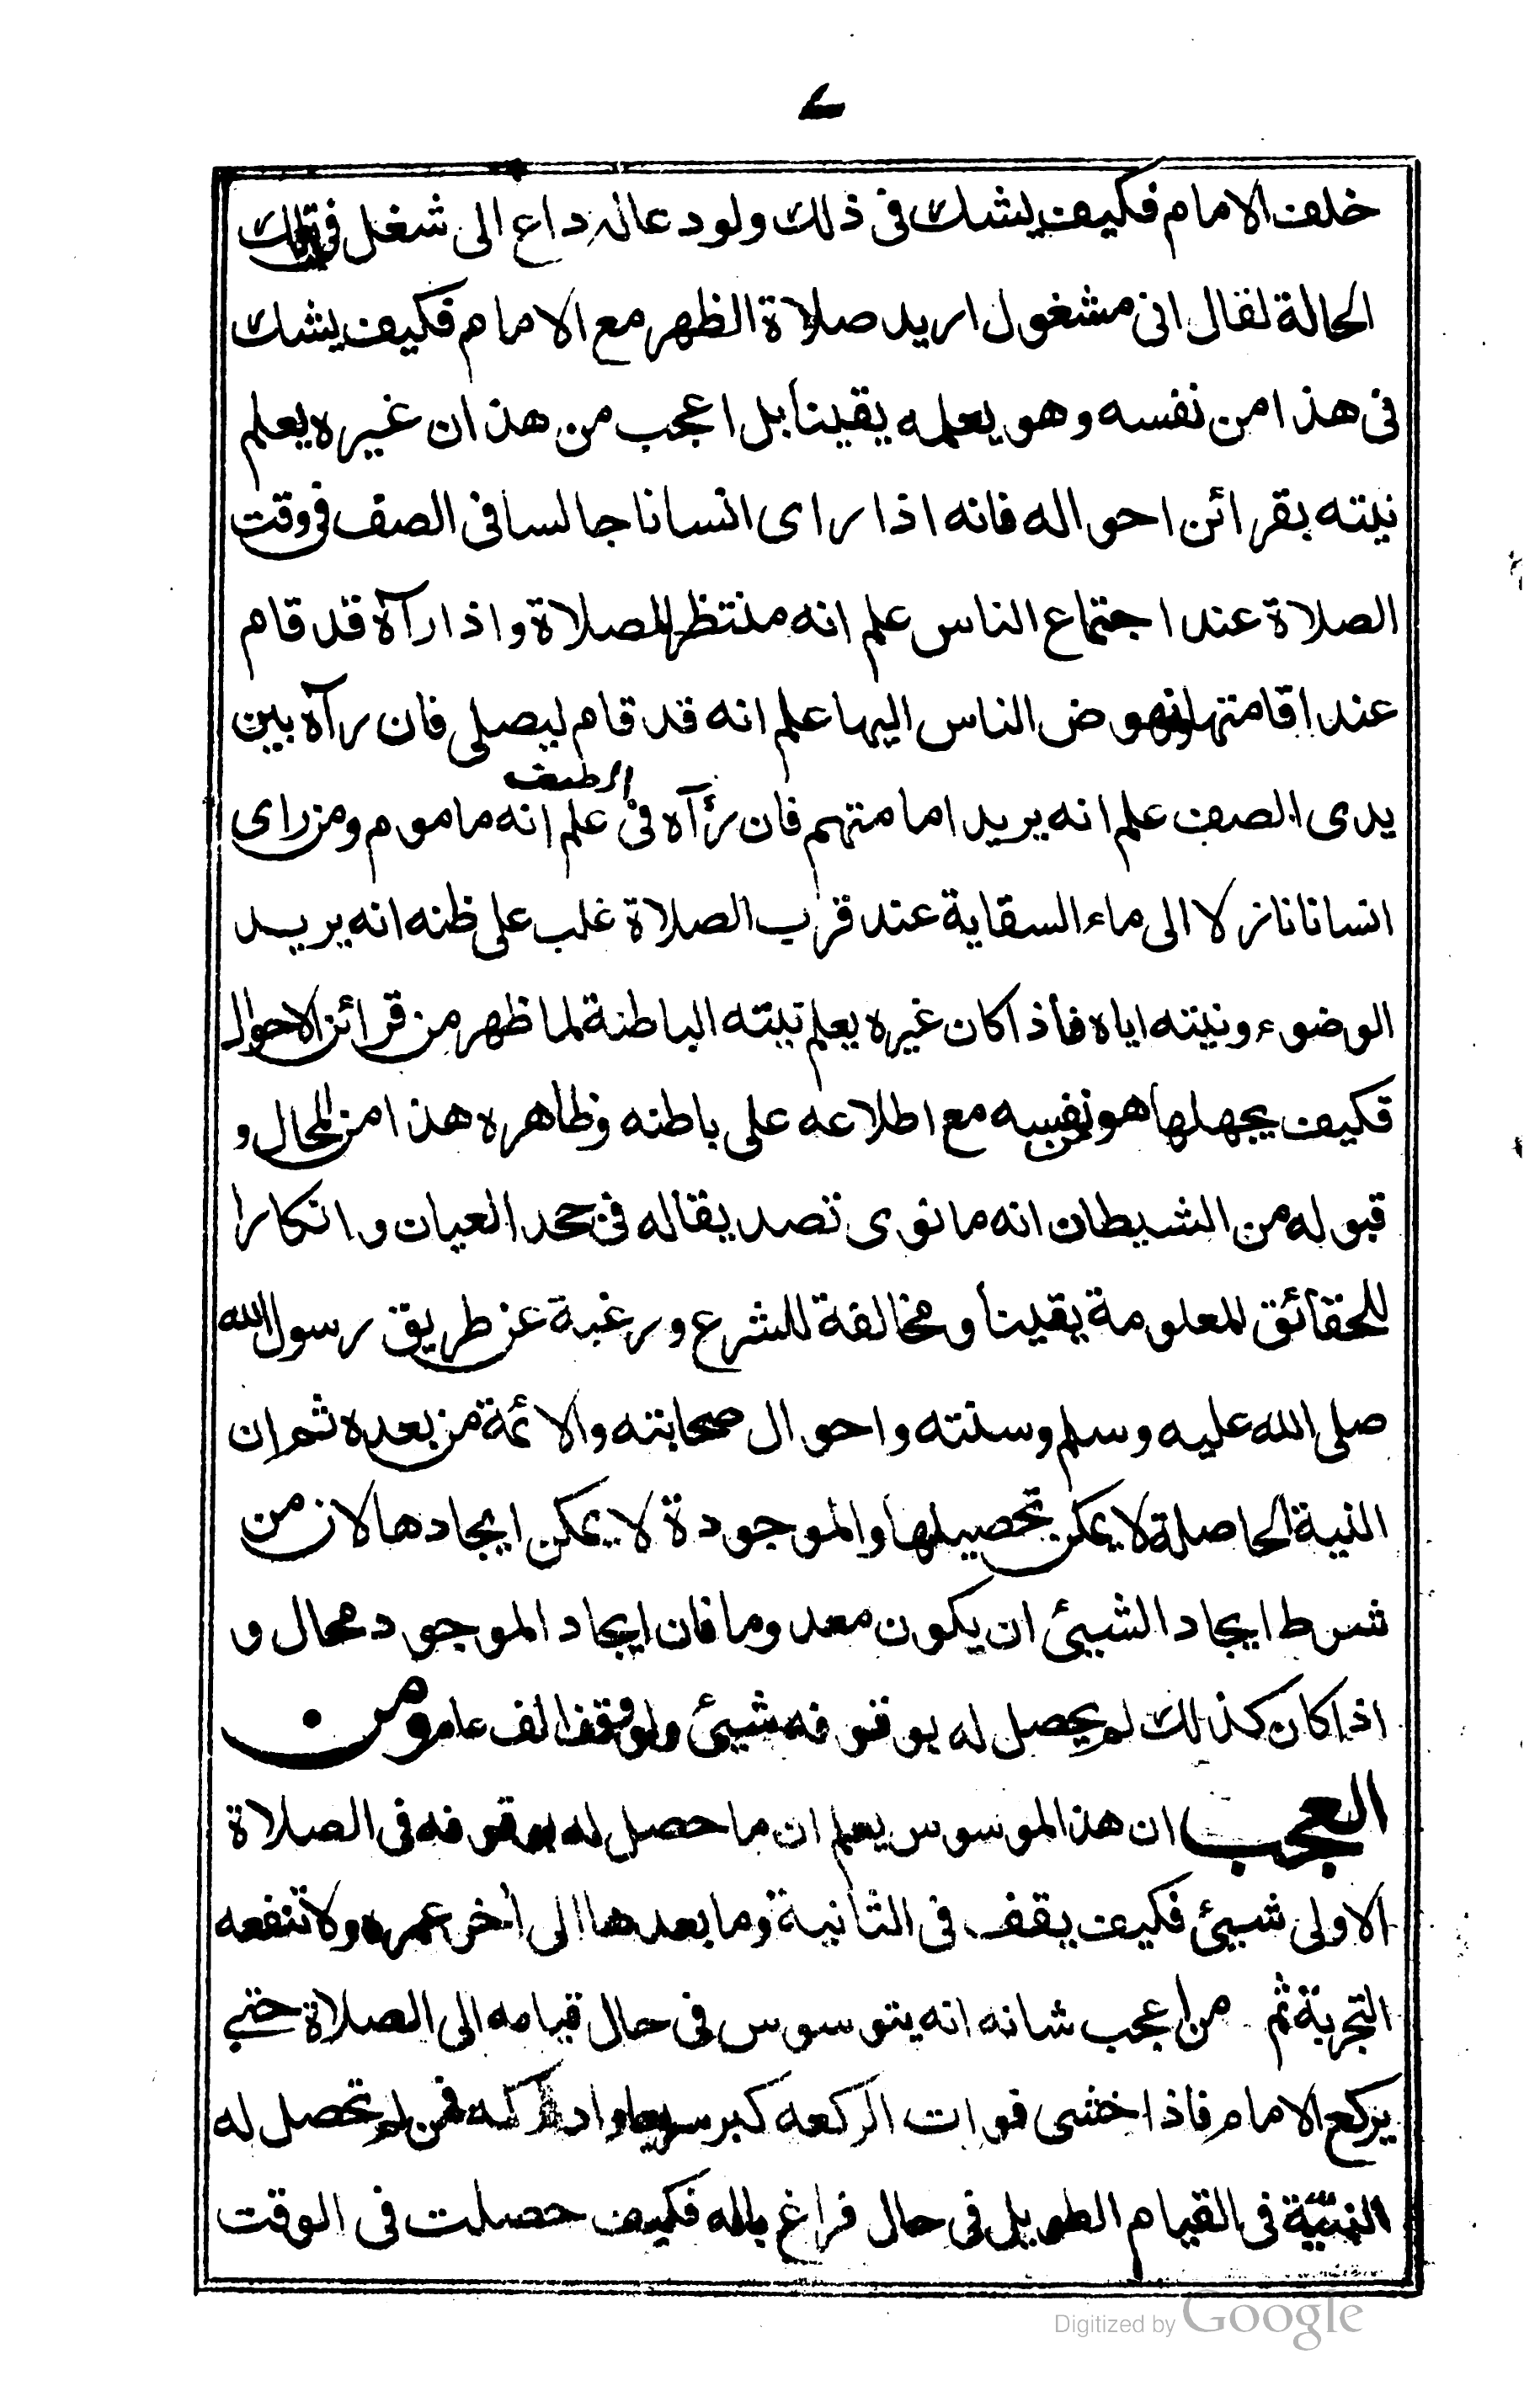 ٧
خلف الامام فكيف يشك فى ذلك ولو دعاله داع الى شغل فى تلك
الحالة لقال انى مشغول اريد صلاة الظهر مع الامام فكيف يشك
فى هذا من نفسه وهو يعلمه يقينا بل اعجب من هذا ان غيره يعلم
نيته بقرائن احواله فانه اذا راى انسانا جالسا فى الصف فى وقت
الصلاة عند اجتماع الناس علم انه منتظر للصلاة واذا رآه قد قام
عند اقامتها ونهوض الناس اليها علم انه قد قام ليصلى فان رآه بين
يدى الصف علم انه يريد امامتهم فان رآه فى الصف علم انه ماموم ومن راى
انسانا نازلا الى ماء السقاية عند قرب الصلاة غلب على ظنه انه يريد
الوضوء ونيته اياه فاذا كان غيره يعلم نيته الباطنة لما ظهر من قرائن الاحوال
فكيف يجهلها هو من نفسه مع اطلاعه على باطنه وظاهره هذا من المحال و
قبوله من الشيطان انه ما نوى تصديقا له فى جحد العيان وانكارا
للحقائق المعلومة يقينا ومخالفة للشرع ورغبة عن طريق رسول الله
صلى الله عليه وسلم وسنته واحوال صحابته والائمة من بعده ثم ان
النية الحاصلة لا يمكن تحصيلها والموجودة لا يمكن ايجادها لان من
شرط ايجاد الشيئ ان يكون معدوما فان ايجاد الموجود محال و
اذا كان كذلك لم يحصل له بوقوفه شيئ ولو وقف الف عام ومن
العجب ان هذا الموسوس يعلم ان ما حصل له بوقوفه فى الصلاة
الاولى شيئ فكيف يقف فى الثانية وما بعدها الى أخر عمره ولا تنفعه
التجربة ثم من اعجب شانه انه يتوسوس فى حال قيامه الى الصلاة حتى
يركع الامام فاذا خشى فوات الركعه كبر سريعا وادركه فمن لم تحصل له
النيّة فى القيام الطويل فى حال فراغ باله فكيف حصلت فى الوقت
Digitized by Google